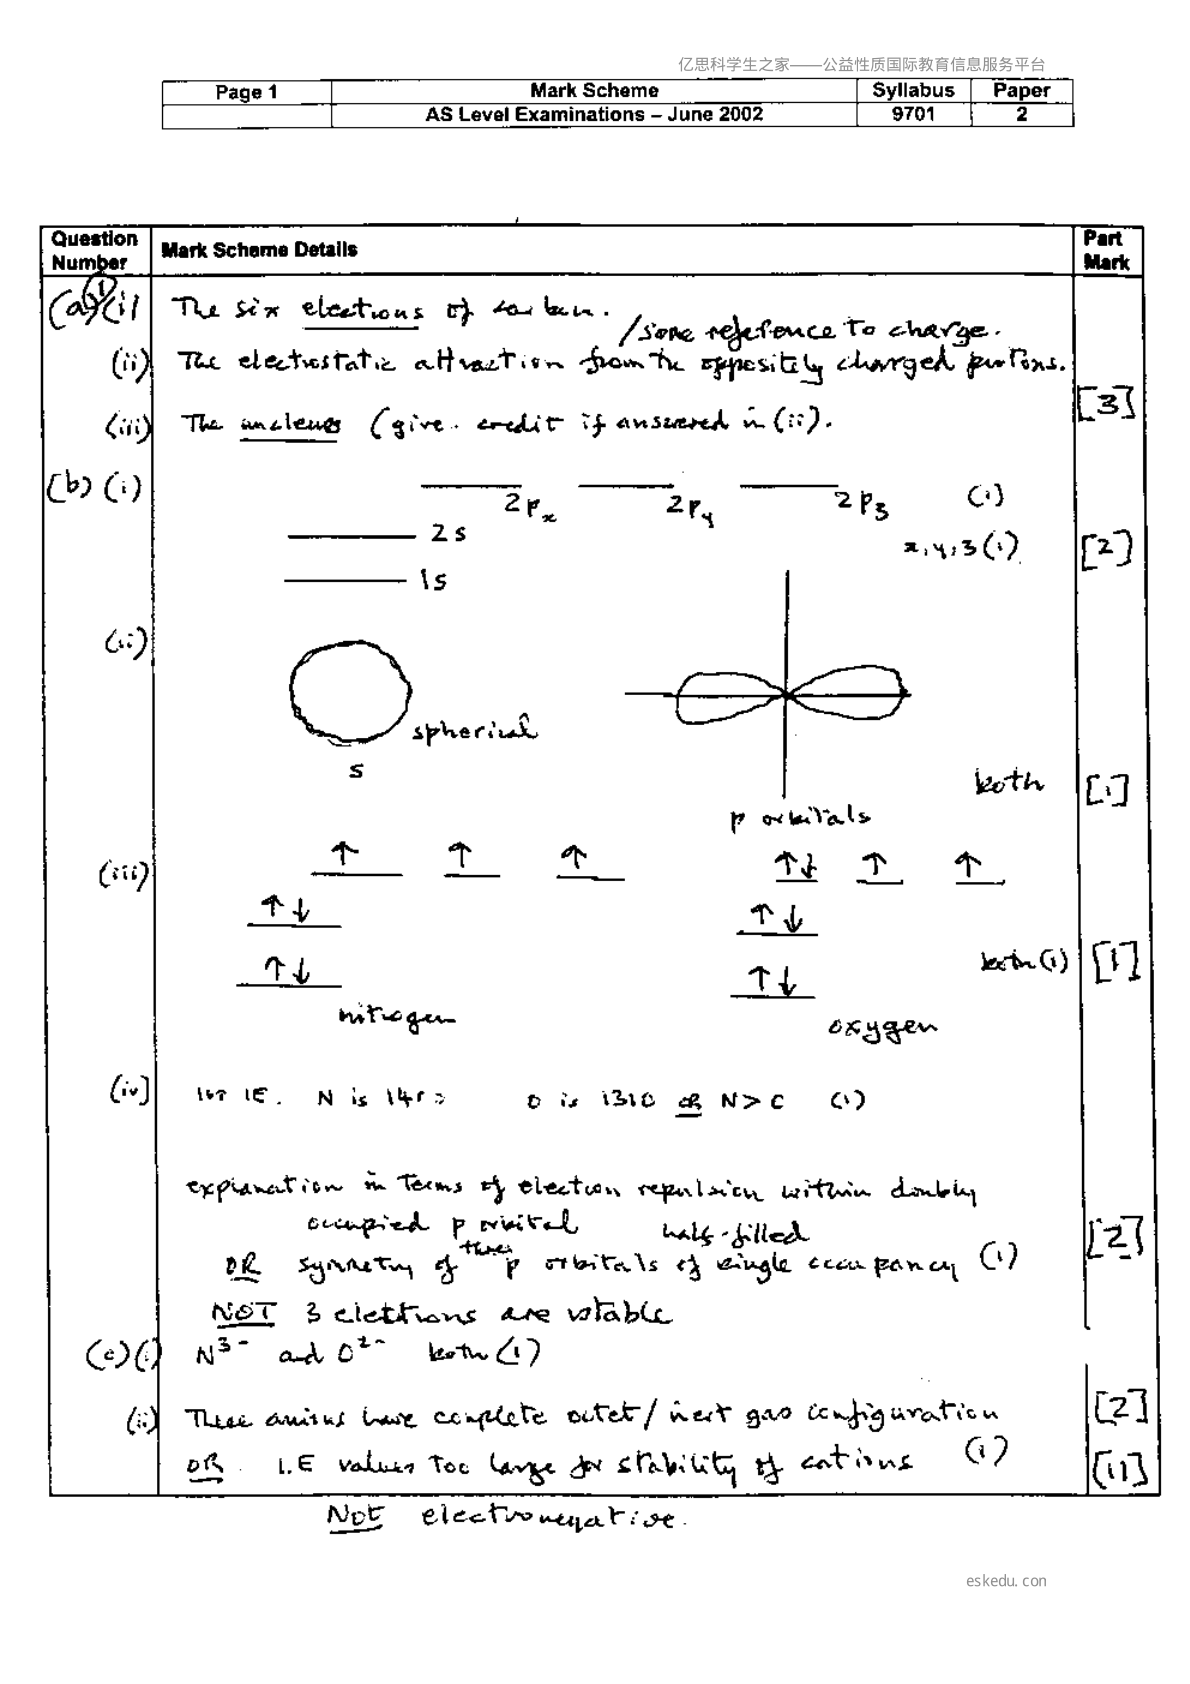 亿思科学生之家——公益性质国际教育信息服务平台
Page 1 Mark Scheme Syllabus Paper
AS Level Examinations – June 2002 9701 2
Question Number Mark Scheme Details Part Mark
1
(a) (i) The six electrons of carbon.
/some reference to charge.
(ii) The electrostatic attraction from the oppositely charged protons.
[3]
(iii) The nucleus (give credit if answered in (ii).
(b) (i) 2px 2py 2pz (1)
2s
x, y, z (1) [2]
1s
(ii)
spherical
s
both [1]
p orbitals
(iii) ↑ ↑ ↑ ↑↓ ↑ ↑
↑↓ ↑↓
↑↓ ↑↓ both (1) [1]
nitrogen oxygen
(iv) 1st IE. N is O is 1310 OR N > (1)
explanation in terms of electron repulsion within doubly
occupied p orbital half-filled
OR symmetry of three p orbitals of single occupancy (1) [2]
NOT 3 electrons are stable
(c) (i) N3- and O2- both (1)
(ii) These anions have complete octet / inert gas configuration [2]
OR I.E values too large for stability of cations (1) [11]
NOT electronegative.
eskedu. con